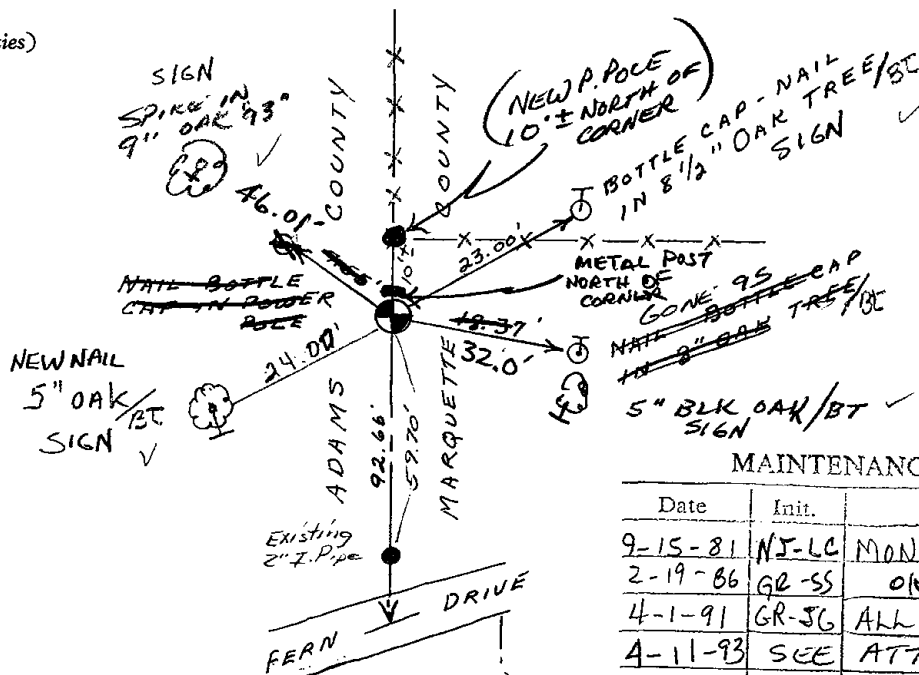 ies)
SIGN
SPIKE IN
9" OAK '93"
46.01-
COUNTY
COUNTY
(NEW P. POLE
10'± NORTH OF
CORNER)
BOTTLE CAP - NAIL
IN 8 1/2" OAK TREE/BT
SIGN
23.00'
METAL POST
NORTH OF
CORNER
NAIL BOTTLE
CAP IN POWER
POLE
GONE 95
NAIL BOTTLE CAP
IN 8" OAK TREE/BT
18.37'
32.0-
5" BLK OAK/BT
SIGN
NEW NAIL
5" OAK/BT
SIGN
24.00'
ADAMS
92.66'
59.70'
MARQUETTE
Existing
2" I. Pipe
FERN DRIVE
MAINTENANC
Date Init.
9-15-81 NJ-LC MON
2-19-86 GR-SS
4-1-91 GR-JG ALL
4-11-93 SEE ATT